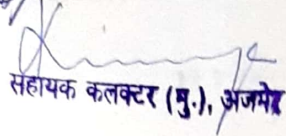 सहायक कलक्टर (मु.), अजमेर